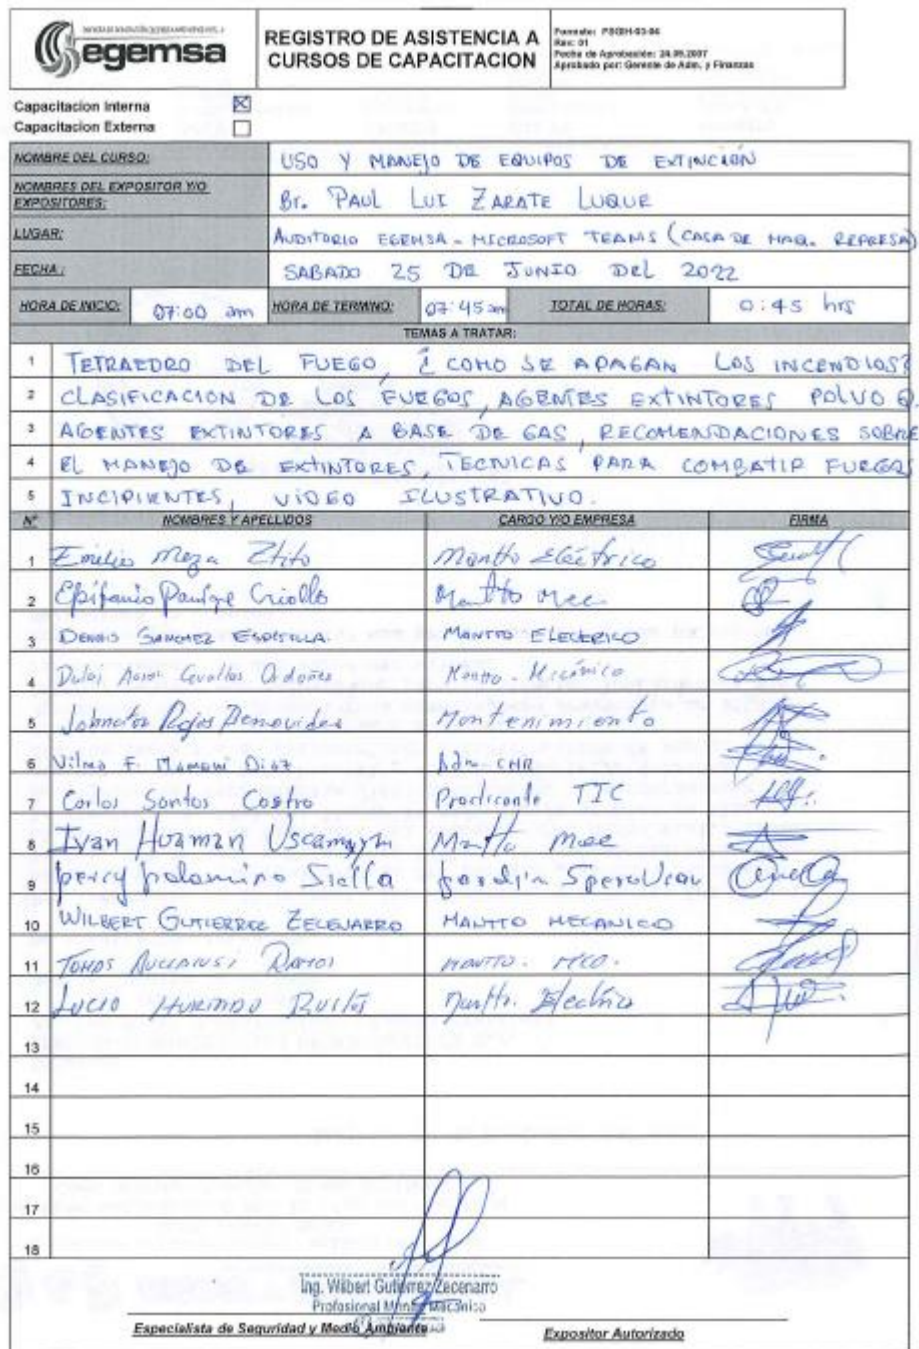 egemsa
REGISTRO DE ASISTENCIA A
CURSOS DE CAPACITACION
Formato: PSGIH-03-04
Rev: 01
Fecha de Aprobación: 24.09.2007
Aprobado por: Gerente de Adm. y Finanzas
Capacitacion Interna ☒
Capacitacion Externa ☐
NOMBRE DEL CURSO: USO Y MANEJO DE EQUIPOS DE EXTINCIÓN
NOMBRES DEL EXPOSITOR Y/O
EXPOSITORES: Br. PAUL LUI ZARATE LUQUE
LUGAR: AUDITORIO EGEMSA - MICROSOFT TEAMS (CASA DE MAQ. REPRESA)
FECHA: SABADO 25 DE JUNIO DEL 2022
HORA DE INICIO: 07:00 am HORA DE TERMINO: 07:45 am TOTAL DE HORAS: 0:45 hrs
TEMAS A TRATAR:
1 TETRAEDRO DEL FUEGO, ¿COMO SE APAGAN LOS INCENDIOS?
2 CLASIFICACION DE LOS FUEGOS, AGENTES EXTINTORES POLVO Q.
3 AGENTES EXTINTORES A BASE DE GAS, RECOMENDACIONES SOBRE
4 EL MANEJO DE EXTINTORES, TECNICAS PARA COMBATIR FUEGOS
5 INCIPIENTES, VIDEO ILUSTRATIVO.
N° NOMBRES Y APELLIDOS CARGO Y/O EMPRESA FIRMA
1 Emilio Meza Ttito Mantto Eléctrico
2 Epifanio Criollo Mantto Mec
3 DENNIS SANCHEZ MANTTO ELECTRICO
4 Cevallos Ordoñez Mantto - Mecánico
5 Rojas Benavides Mantenimiento
6 Vilma F. Mamani Diaz Adm. CHR
7 Carlos Santos Castro Practicante TIC
8 Ivan Huaman Mantto Mec
9 percy palomino Siella
10 WILBERT GUTIERREZ ZECENARRO MANTTO MECANICO
11 TOMAS RAMOS MANTTO. MEC.
12 LUCIO HURTADO Mantto. Electrico
13
14
15
16
17
18
Ing. Wilbert Gutierrez Zecenarro
Profesional Mantto Mecánico
Especialista de Seguridad y Medio Ambiente
Expositor Autorizado